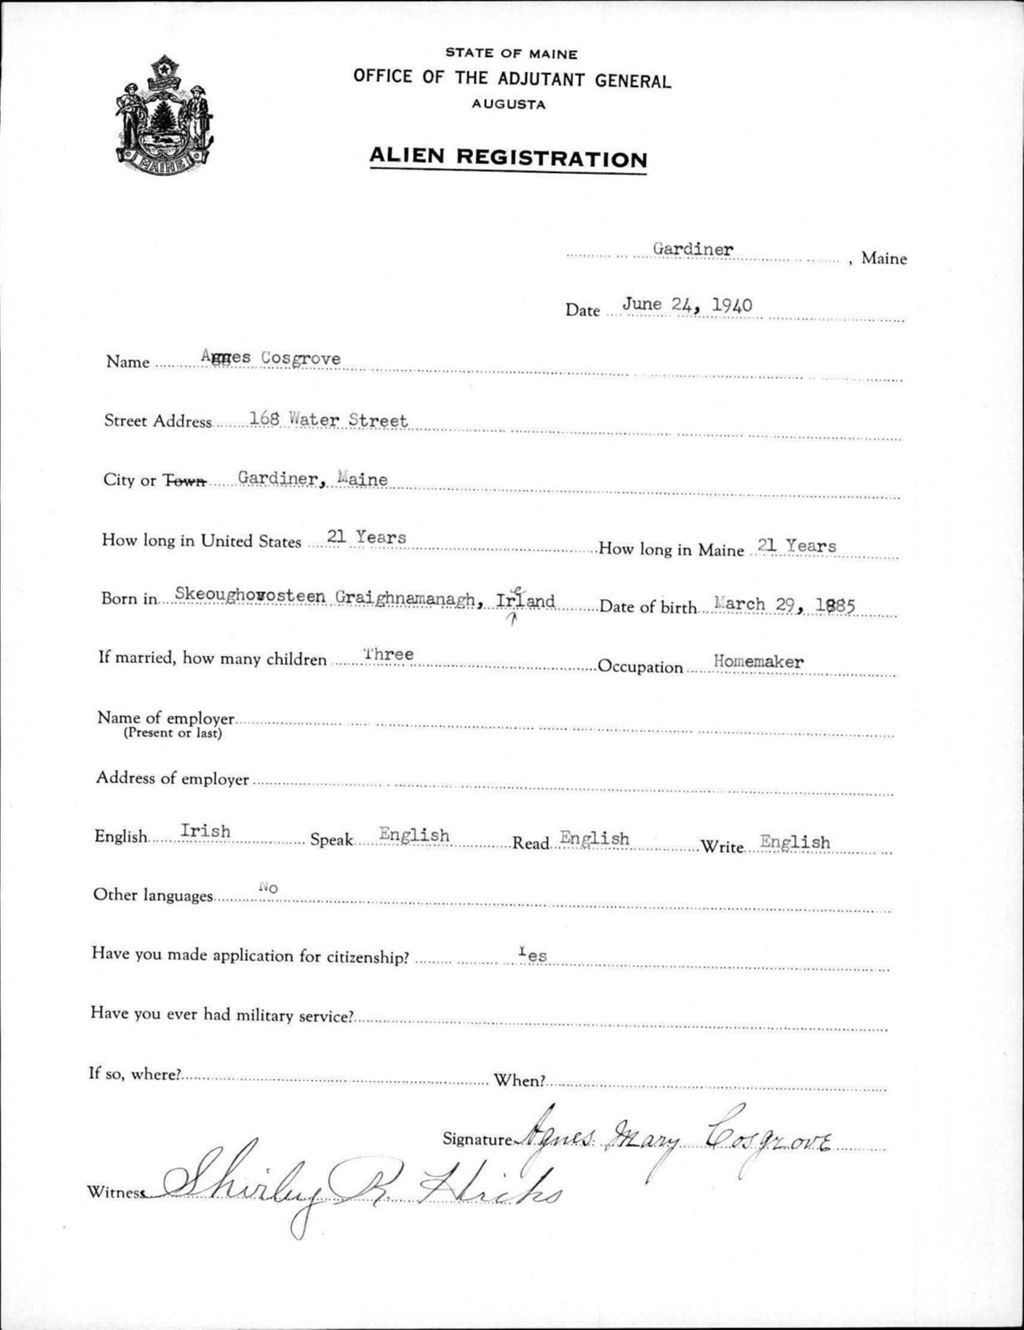 STATE OF MAINE
OFFICE OF THE ADJUTANT GENERAL
AUGUSTA
ALIEN REGISTRATION
MAINE
Gardiner, Maine
Date June 24, 1940
Name Agnes Cosgrove
Street Address 168 Water Street
City or Town Gardiner, Maine
How long in United States 21 Years How long in Maine 21 Years
Born in Skeoughovosteen Graighnamanagh, Ireland Date of birth March 29, 1885
If married, how many children Three Occupation Homemaker
Name of employer
(Present or last)
Address of employer
English Irish Speak English Read English Write English
Other languages No
Have you made application for citizenship? Yes
Have you ever had military service?
If so, where? When?
Signature Agnes Mary Cosgrove
Witness Shirley R. Hicks